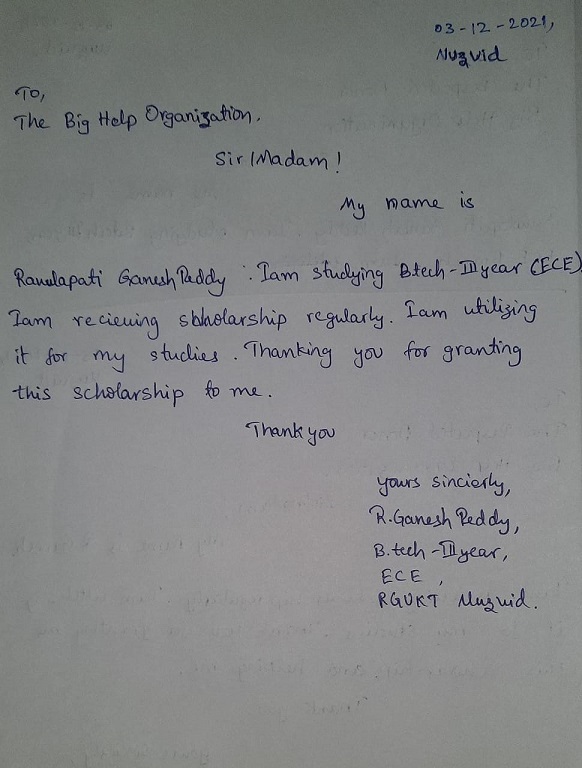 03-12-2021,
Nuzvid
To,
The Big Help Organization.
Sir/Madam!
My name is
Ravulapati Ganesh Reddy. Iam studying Btech-III year (ECE)
Iam recieving sbholarship regularly. Iam utilizing
it for my studies. Thanking you for granting
this scholarship to me.
Thank you
yours sincierly,
R.Ganesh Reddy,
B.tech-III year,
ECE,
RGUKT Nuzvid.